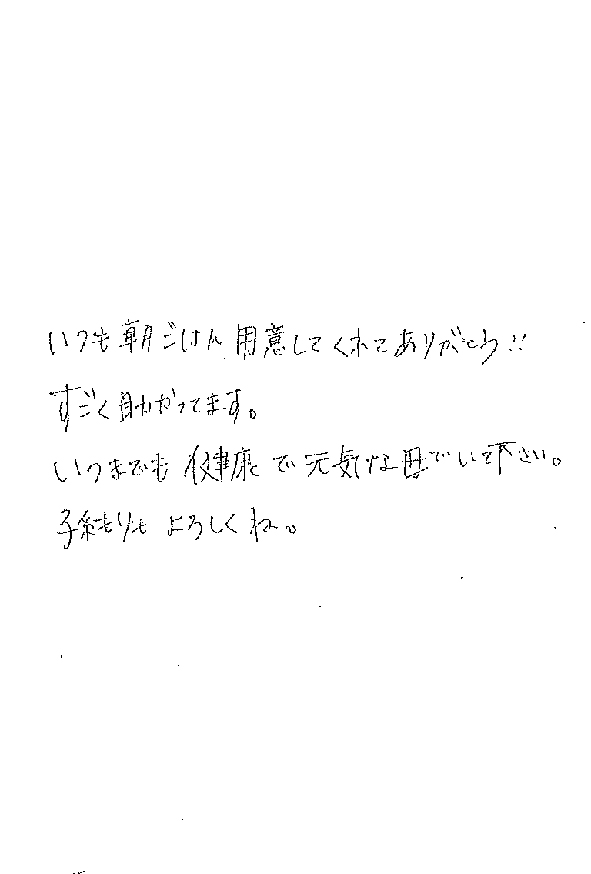 いつも朝ごはん用意してくれてありがとう!!
すごく助かってます。
いつまでも健康で元気な母でいて下さい。
子守りもよろしくね。